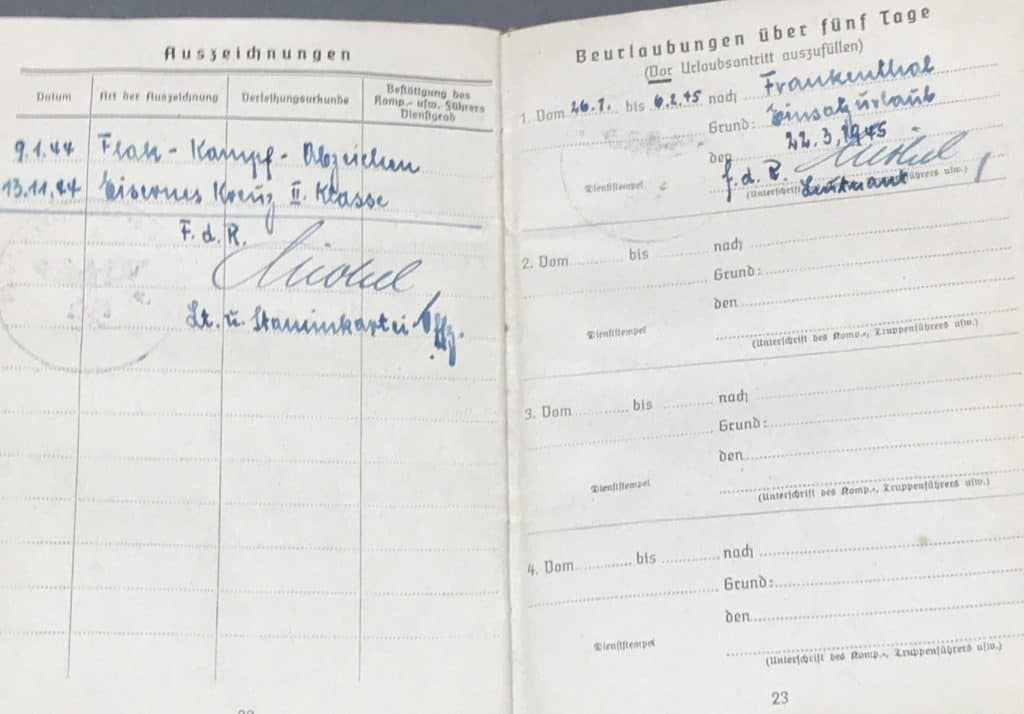 Auszeichnungen
Datum Art der Auszeichnung Verleihungsurkunde Bestätigung des Komp.- usw. Führers Dienstgrad
9.1.44 Flak-Kampf-Abzeichen
13.11.44 Eisernes Kreuz II. Klasse
F.d.R.
Lt. u. Stammkartei-Offz.
Beurlaubungen über fünf Tage
(Vor Urlaubsantritt auszufüllen)
1. Vom 26.1. bis 6.2.45 nach Frankenthal
Grund: Einsatzurlaub
den 22.3.1945
f.d.R.
Dienststempel
(Unterschrift des Komp.-, Truppenführers usw.)
Leutnant
2. Vom bis nach
Grund:
den
Dienststempel
(Unterschrift des Komp.-, Truppenführers usw.)
3. Vom bis nach
Grund:
den
Dienststempel
(Unterschrift des Komp.-, Truppenführers usw.)
4. Vom bis nach
Grund:
den
Dienststempel
(Unterschrift des Komp.-, Truppenführers usw.)
23